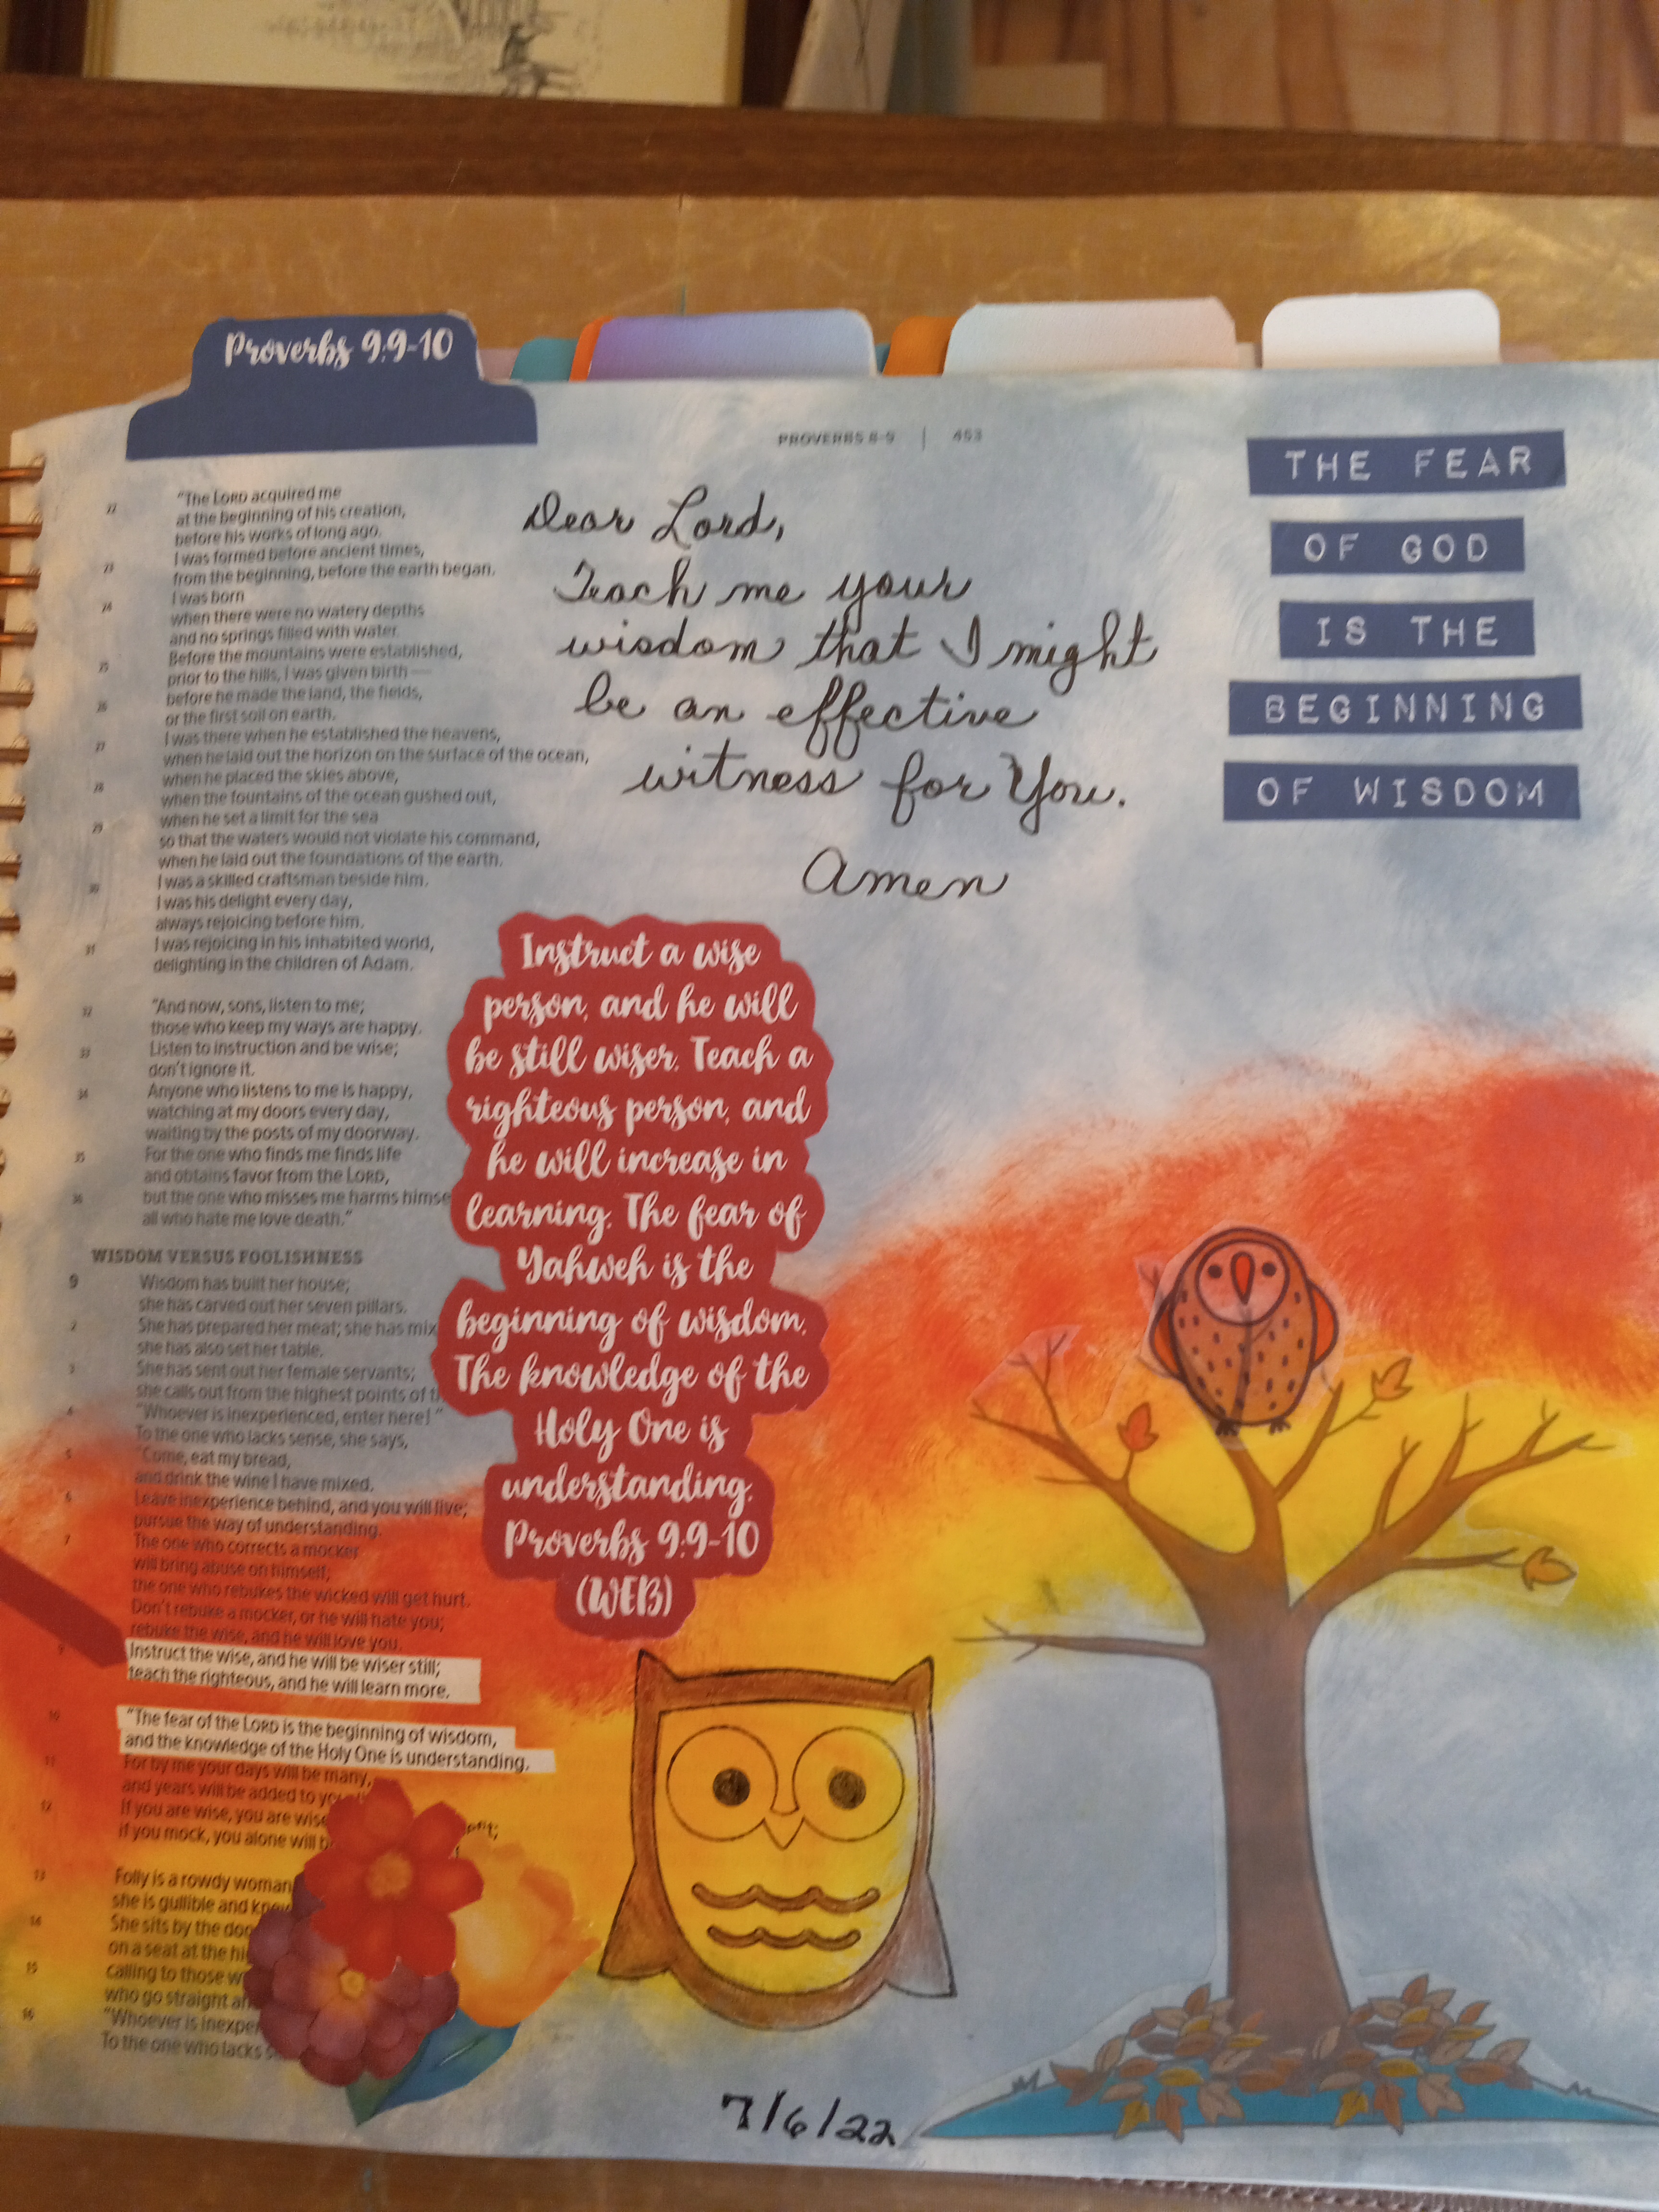 Proverbs 9:9-10
PROVERBS 8-9 | 453
THE FEAR
OF GOD
IS THE
BEGINNING
OF WISDOM
Dear Lord,
Teach me your
wisdom that I might
be an effective
witness for You.
Amen
22 "The LORD acquired me
at the beginning of his creation,
before his works of long ago.
23 I was formed before ancient times,
from the beginning, before the earth began.
24 I was born
when there were no watery depths
and no springs filled with water.
25 Before the mountains were established,
prior to the hills, I was given birth—
26 before he made the land, the fields,
or the first soil on earth.
27 I was there when he established the heavens,
when he laid out the horizon on the surface of the ocean,
28 when he placed the skies above,
when the fountains of the ocean gushed out,
29 when he set a limit for the sea
so that the waters would not violate his command,
when he laid out the foundations of the earth.
30 I was a skilled craftsman beside him.
I was his delight every day,
always rejoicing before him.
31 I was rejoicing in his inhabited world,
delighting in the children of Adam.
32 "And now, sons, listen to me;
those who keep my ways are happy.
33 Listen to instruction and be wise;
don't ignore it.
34 Anyone who listens to me is happy,
watching at my doors every day,
waiting by the posts of my doorway.
35 For the one who finds me finds life
and obtains favor from the LORD,
36 but the one who misses me harms himse
all who hate me love death."
WISDOM VERSUS FOOLISHNESS
9 Wisdom has built her house;
she has carved out her seven pillars.
2 She has prepared her meat; she has mix
she has also set her table.
3 She has sent out her female servants;
she calls out from the highest points of
4 "Whoever is inexperienced, enter here!"
To the one who lacks sense, she says,
5 "Come, eat my bread,
and drink the wine I have mixed.
6 Leave inexperience behind, and you will live;
pursue the way of understanding.
7 The one who corrects a mocker
will bring abuse on himself;
the one who rebukes the wicked will get hurt.
Don't rebuke a mocker, or he will hate you;
rebuke the wise, and he will love you.
9 Instruct the wise, and he will be wiser still;
teach the righteous, and he will learn more.
10 "The fear of the LORD is the beginning of wisdom,
and the knowledge of the Holy One is understanding.
11 For by me your days will be many,
and years will be added to yo
12 If you are wise, you are wise
if you mock, you alone will b
13 Folly is a rowdy woman
she is gullible and know
14 She sits by the doo
on a seat at the hi
15 calling to those w
who go straight ah
16 "Whoever is inexper
To the one who lacks s
Instruct a wise
person, and he will
be still wiser. Teach a
righteous person, and
he will increase in
learning. The fear of
Yahweh is the
beginning of wisdom.
The knowledge of the
Holy One is
understanding.
Proverbs 9:9-10
(WEB)
7/6/22